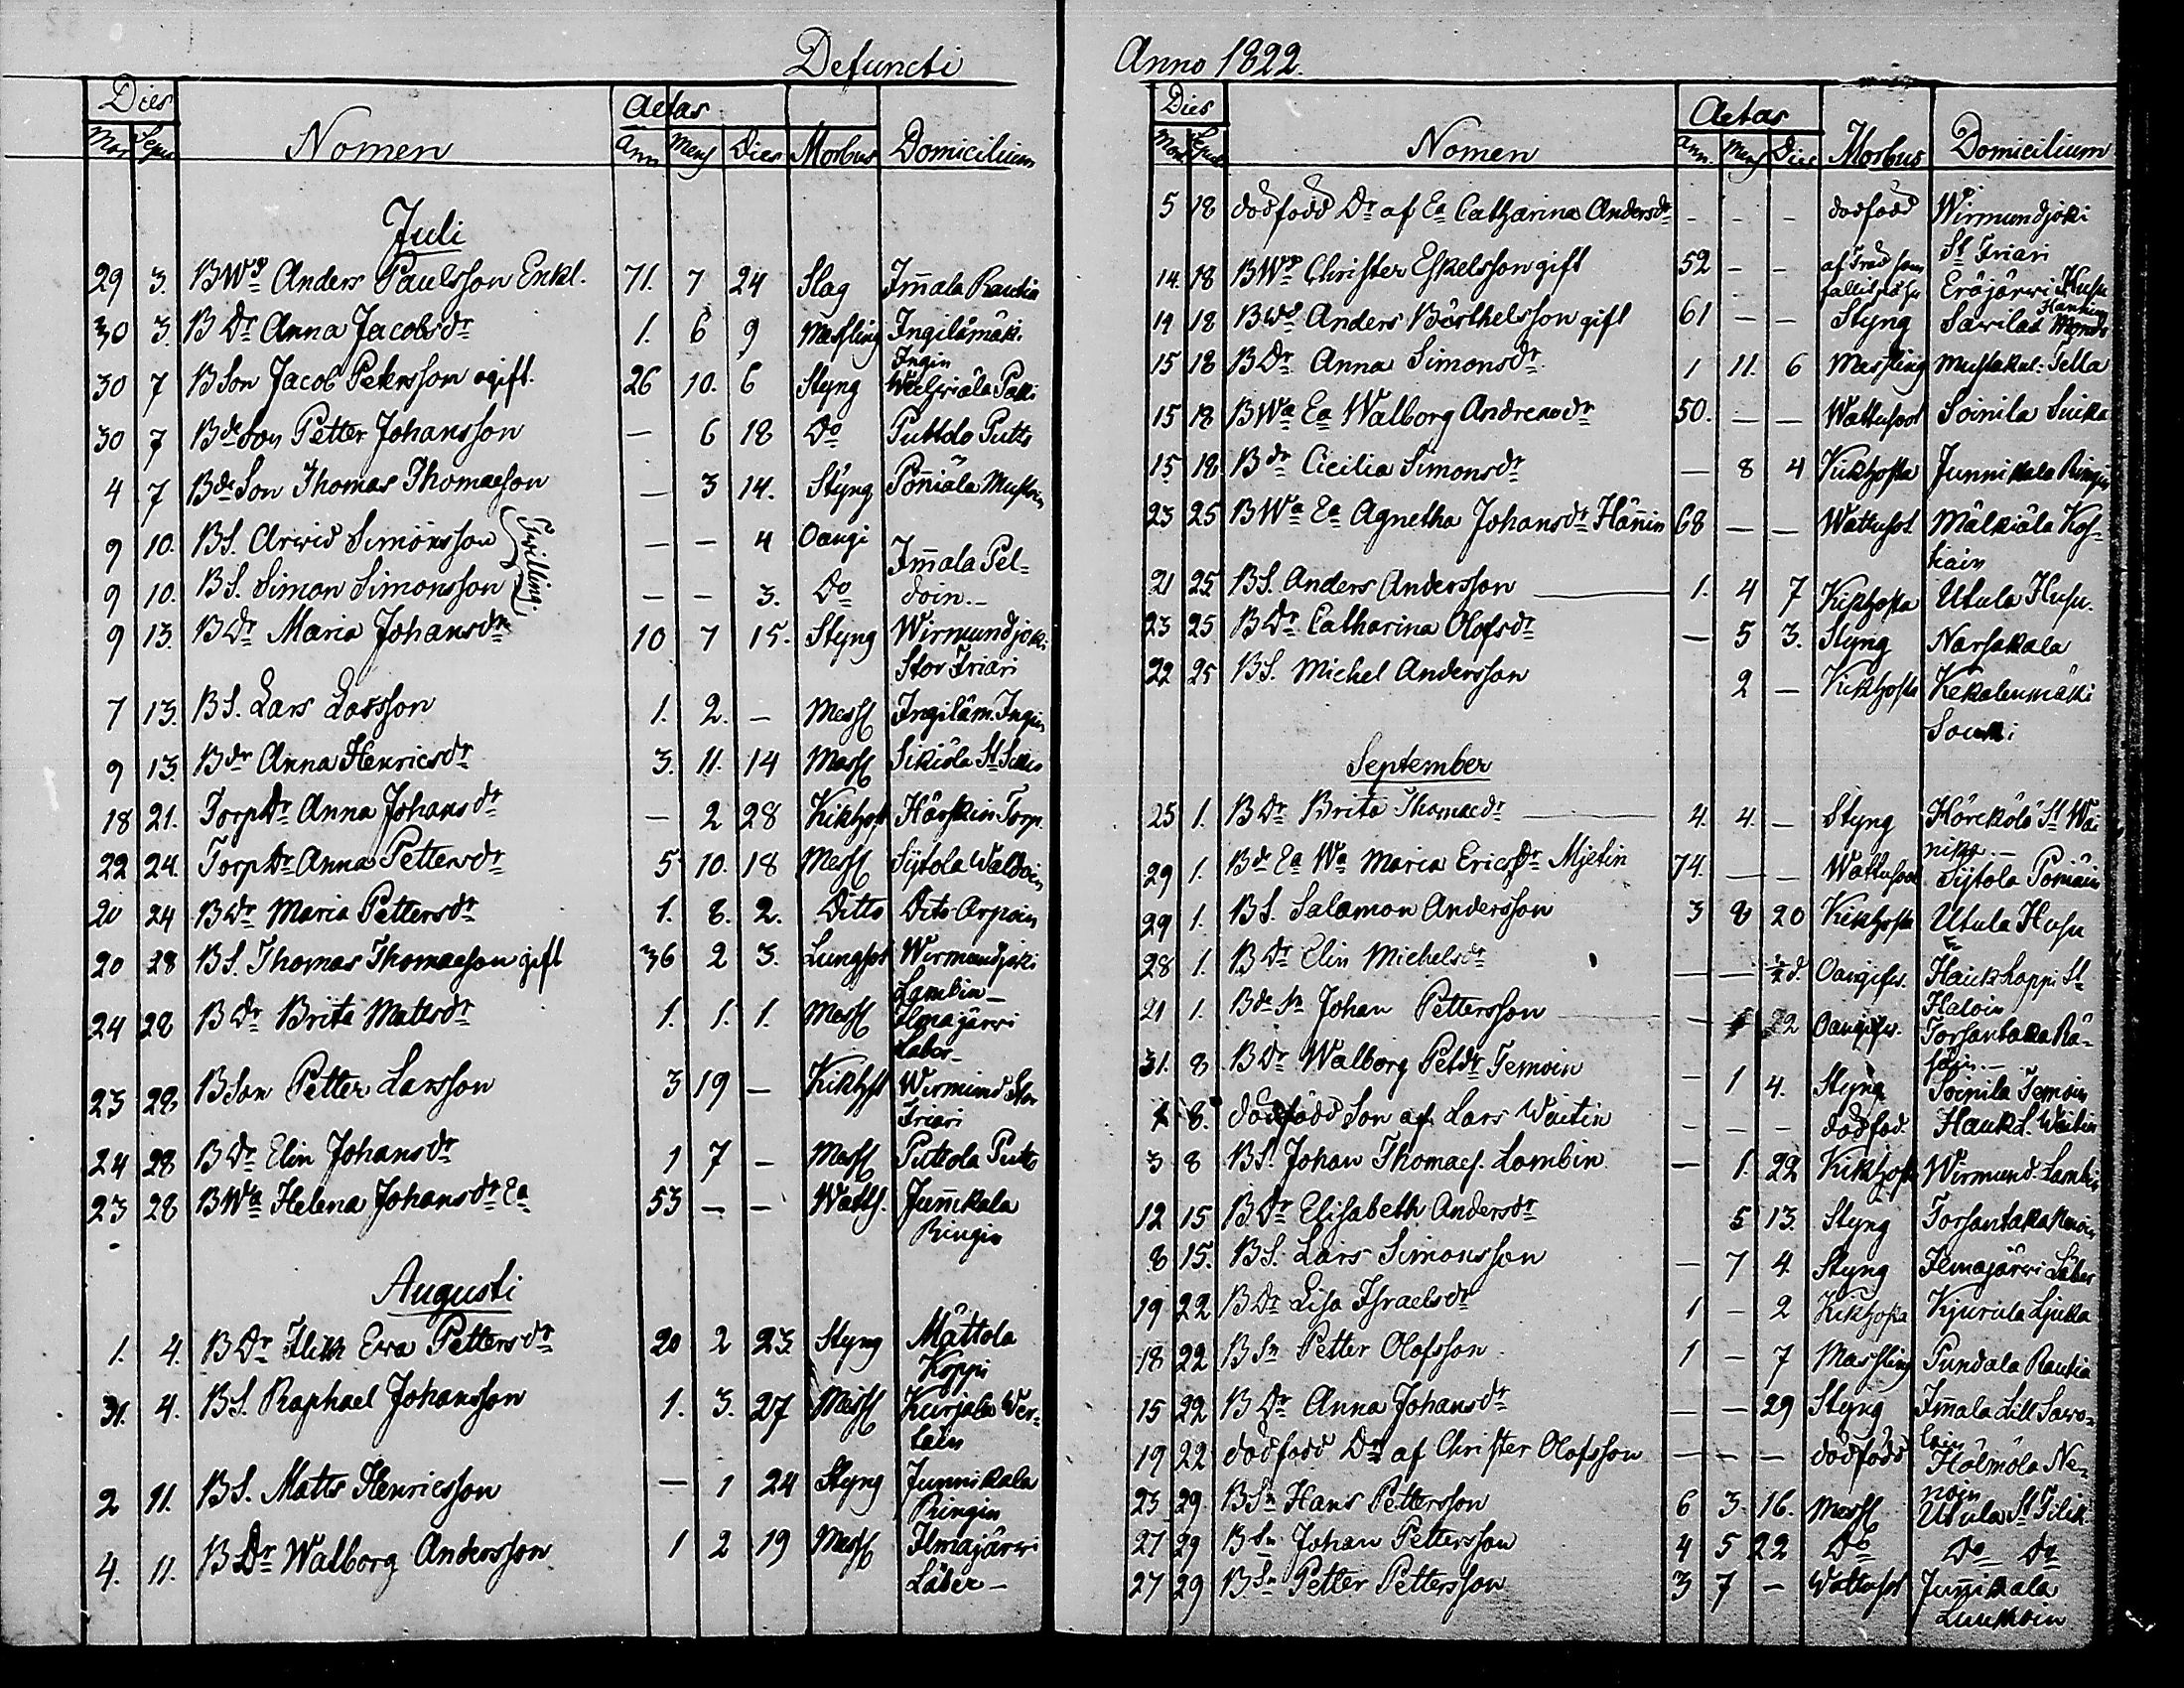 Defuncti
Dies
Mor Sepul Nomen Aetas
Ann Mens Dies Morbus Domicilium
Juli
29 3. BWr Anders Paulsson Enkl. 71. 7 24 Slag Im̄ala Rautia
30 3. B Dr Anna Jacobsdr 1. 6 9 Messling Ingilämäki
Ingin
30 7 BSon Jacob Petersson ogift. 26 10. 6 Styng
30 7 BdeSon Petter Johansson — 6 18 Do Puttola Putto
4 7 BdeSon Thomas Thomaeson — 3 14. Styng Pon̄iäla
9 10. BS. Arvid Simonsson — — 4 Oangi Im̄ala Pel=
Twilling
9 10. BS. Simon Simonsson — — 3. Do doin.—
9 13. BDr Maria Johansdr 10 7 15. Styng Wirmundjoki
Stor Friari
7 13. BS. Lars Larsson 1. 2. — Messl Ingiläm. Ingin
9 13. Bdr Anna Henricsdr 3. 11. 14 Messl Sikiölä St
18 21. TorpDr Anna Johansdr — 2 28 Kikhost Härskin Torp.
22 24. TorpDr Anna Pettersdr 5 10. 18 Messl Sijtola Waldoin
20 24 BDr Maria Pettersdr 1. 8. 2. Ditto Dito Arpoin
20 28 BS. Thomas Thomaeson gift 36 2 3. Lungsot Wirmundjoki
Lambin—
24 28 BDr Brita Matsdr 1. 1. 1. Messl Ilmajärwi
Laber—
23 28 BSon Petter Larsson 3 19 — Kikhst Wirmund Stor
Friari
24 28 BDr Elin Johansdr 1 7 — Messl Puttola Putto
23 28 BWa Helena Johansdr Ea 53 — — Watts. Jun̄ikala
Ringin
Augusti
1. 4. BDr Ewa Pettersdr 20 2 23. Styng Mättola
Koppi
31. 4. BS. Raphael Johansson 1. 3. 27 Messl Kurjala Wer-
tain
2 11. BS. Matts Henricsson — 1 24 Styng Junnikala
Ringin
4. 11. BDr Walborg Andersson 1 2 19 Messl Ilmajärwi
Läber—
Anno 1822.
Dies
Mor Sepul Nomen Aetas
Ann. Mens Dies Morbus Domicilium
5 18 dödfödd Dr af Ea Catharina Andersdr - - - dödfödd Wirmundjoki
St Friari
14. 18 BWr Christer Eskelsson gift 52 — — af Träd som
Eräjärwi Husu
14 18 BWr Anders Bärthelsson gift 61 — — Styng Sawilat
15 18 BDr Anna Simonsdr 1 11. 6 Messling Mustakal: Sella
15 18 BWa Ea Walborg Andreaedr 50. — — Wattusot Soinila Suika
15 18 Bdr Cicilia Simonsdr — 8 4 Kikhosta Junnikala Ringin
23 25 BWa Ea Agnetha Johansdr Hän̄in 68 — — Wattusot Mälkiälä Kos=
kain
21 25 BS. Anders Andersson 1. 4 7 Kikhosta Utula Husu.
23 25 BDr Catharina Olofsdr — 5 3. Styng Narsakala
22 25 BS. Michel Andersson 2 — Kikhosta Kekalenmäki
Soukki
September
25 1. BDr Brita Thomaedr 4. 4. — Styng Häreköld St Wai
nika.—
29 1. Bde Ea Wa Maria Ericsdr Mjetin 74. — — Wattusot Sijtola Pomäin
29 1. BS. Salamon Andersson 3 8 20 Kikhosta Utula Husu
28 1. BDr Elin Michelsdr — — ½ d. Oangifw. Haukkappi St
Haloin
21 1. Bde Sn Johan Pettersson — 22 Oangifw. Torsantaka Rä-
säjn.—
31. 8 BDr Walborg Petdr Temoin — 1 4. Styng Soinila Temoin
1 8. dödfödd Son af Lars Waitin — — — dödföd. Haukk. Waitin
3 8 BS. Johan Thomaes. Lambin — 1. 22 Kikhost Wirmund. Lambin
12 15 BDr Elisabeth Andersdr 5 13. Styng Torsantaka
8 15. BS. Lars Simonsson — 7 4. Styng Ilmajärwi Läber
19 22 BDr Lisa Israelsdr 1 — 2 Kikhosta Kjurula Ljukka
18 22 BSn Petter Olofsson 1 — 7 Massling Pundala Rautia
15 22 BDr Anna Johansdr — — 29 Styng Im̄ala Lill Sawo-
lain
19 22 dödfödd Dr af Christer Olofsson — — — dödfödd Hälmölä Ne-
noin
23 29 BSn Hans Pettersson 6 3 16. Messl Utula St Pilik.
27 29 BSn Johan Pettersson 4 5 22 Do Do Do
27 29 BSn Petter Pettersson 3 7 — Wattusot Jun̄ikala
Luukoin